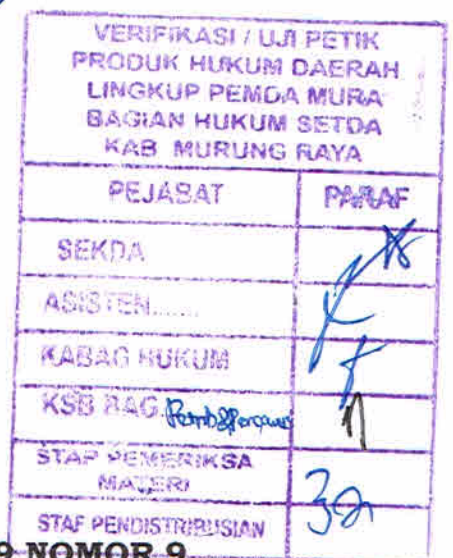 VERIFIKASI / UJI PETIK
PRODUK HUKUM DAERAH
LINGKUP PEMDA MURA
BAGIAN HUKUM SETDA
KAB MURUNG RAYA
PEJABAT PARAF
SEKDA
ASISTEN.......
KABAG HUKUM
KSB BAG.
STAP PEMERIKSA
MATERI
STAF PENDISTRIBUSIAN
9 NOMOR 9